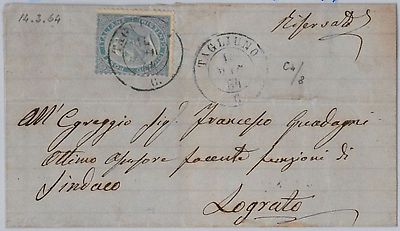 14.3.64
Riservata
TAGLIUNO
C4/8
All' Egreggio Sig.r Francesco Guadagni
Ottimo Assessore facente funzioni di
Sindaco
Lograto